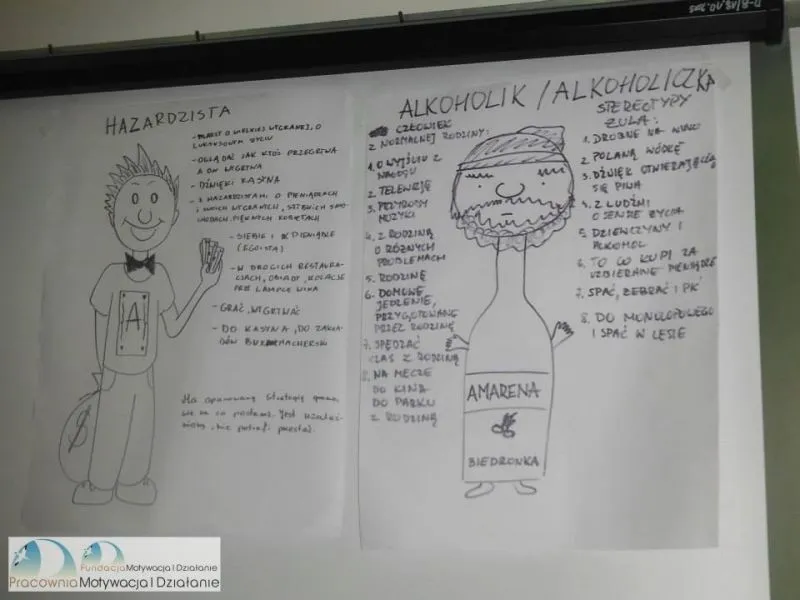 HAZARDZISTA
- MARZY O WIELKIEJ WYGRANEJ, O
LUKSUSOWYM ŻYCIU
- OGLĄDAĆ JAK KTOŚ PRZEGRYWA
A ON WYGRYWA
- DŹWIĘKI KASYNA
- Z HAZARDZISTAMI O PIENIĄDZACH
I WYGRANYCH, SZYBKICH SAMO
CHODACH, PIĘKNYCH KOBIETACH
- SIEBIE I PIENIĄDZE
(EGOISTA)
- W DROGICH RESTAURA-
CJACH, OBIADY, KOLACJE
PRZY LAMPCE WINA
- GRAĆ, WYGRYWAĆ
- DO KASYNA, DO ZAKŁA-
DÓW BUKMACHERSKI
Ma opanowaną strategię
Jest
nie potrafi przestać.
A
$
ALKOHOLIK / ALKOHOLICZKA
CZŁOWIEK
Z NORMALNEJ RODZINY:
1. O WYJŚCIU Z
NAŁOGU
2. TELEWIZJĘ
3. PRZYRODY
MUZYKI
4. Z RODZINĄ
O RÓŻNYCH
PROBLEMACH
5. RODZINĘ
6. DOMOWE
JEDZENIE,
PRZYGOTOWANE
PRZEZ RODZINĘ
7. SPĘDZAĆ
CZAS Z RODZINĄ
8. NA MECZE
DO KINA
DO PARKU
Z RODZINĄ
STEREOTYPY
ŻULA:
1. DROBNE NA WINO
2. POLANĄ WÓDKĘ
3. DŹWIĘK OTWIERAJĄCEGO
SIĘ PIWA
4. Z LUDŹMI
O SENSIE ŻYCIA
5. DZIEWCZYNY I
ALKOHOL
6. TO CO KUPI ZA
UZBIERANE PIENIĄDZE
7. SPAĆ, ŻEBRAĆ I PIĆ
8. DO MONOPOLOWEGO
I SPAĆ W LESIE
AMARENA
BIEDRONKA
Fundacja Motywacja I Działanie
Pracownia Motywacja I Działanie